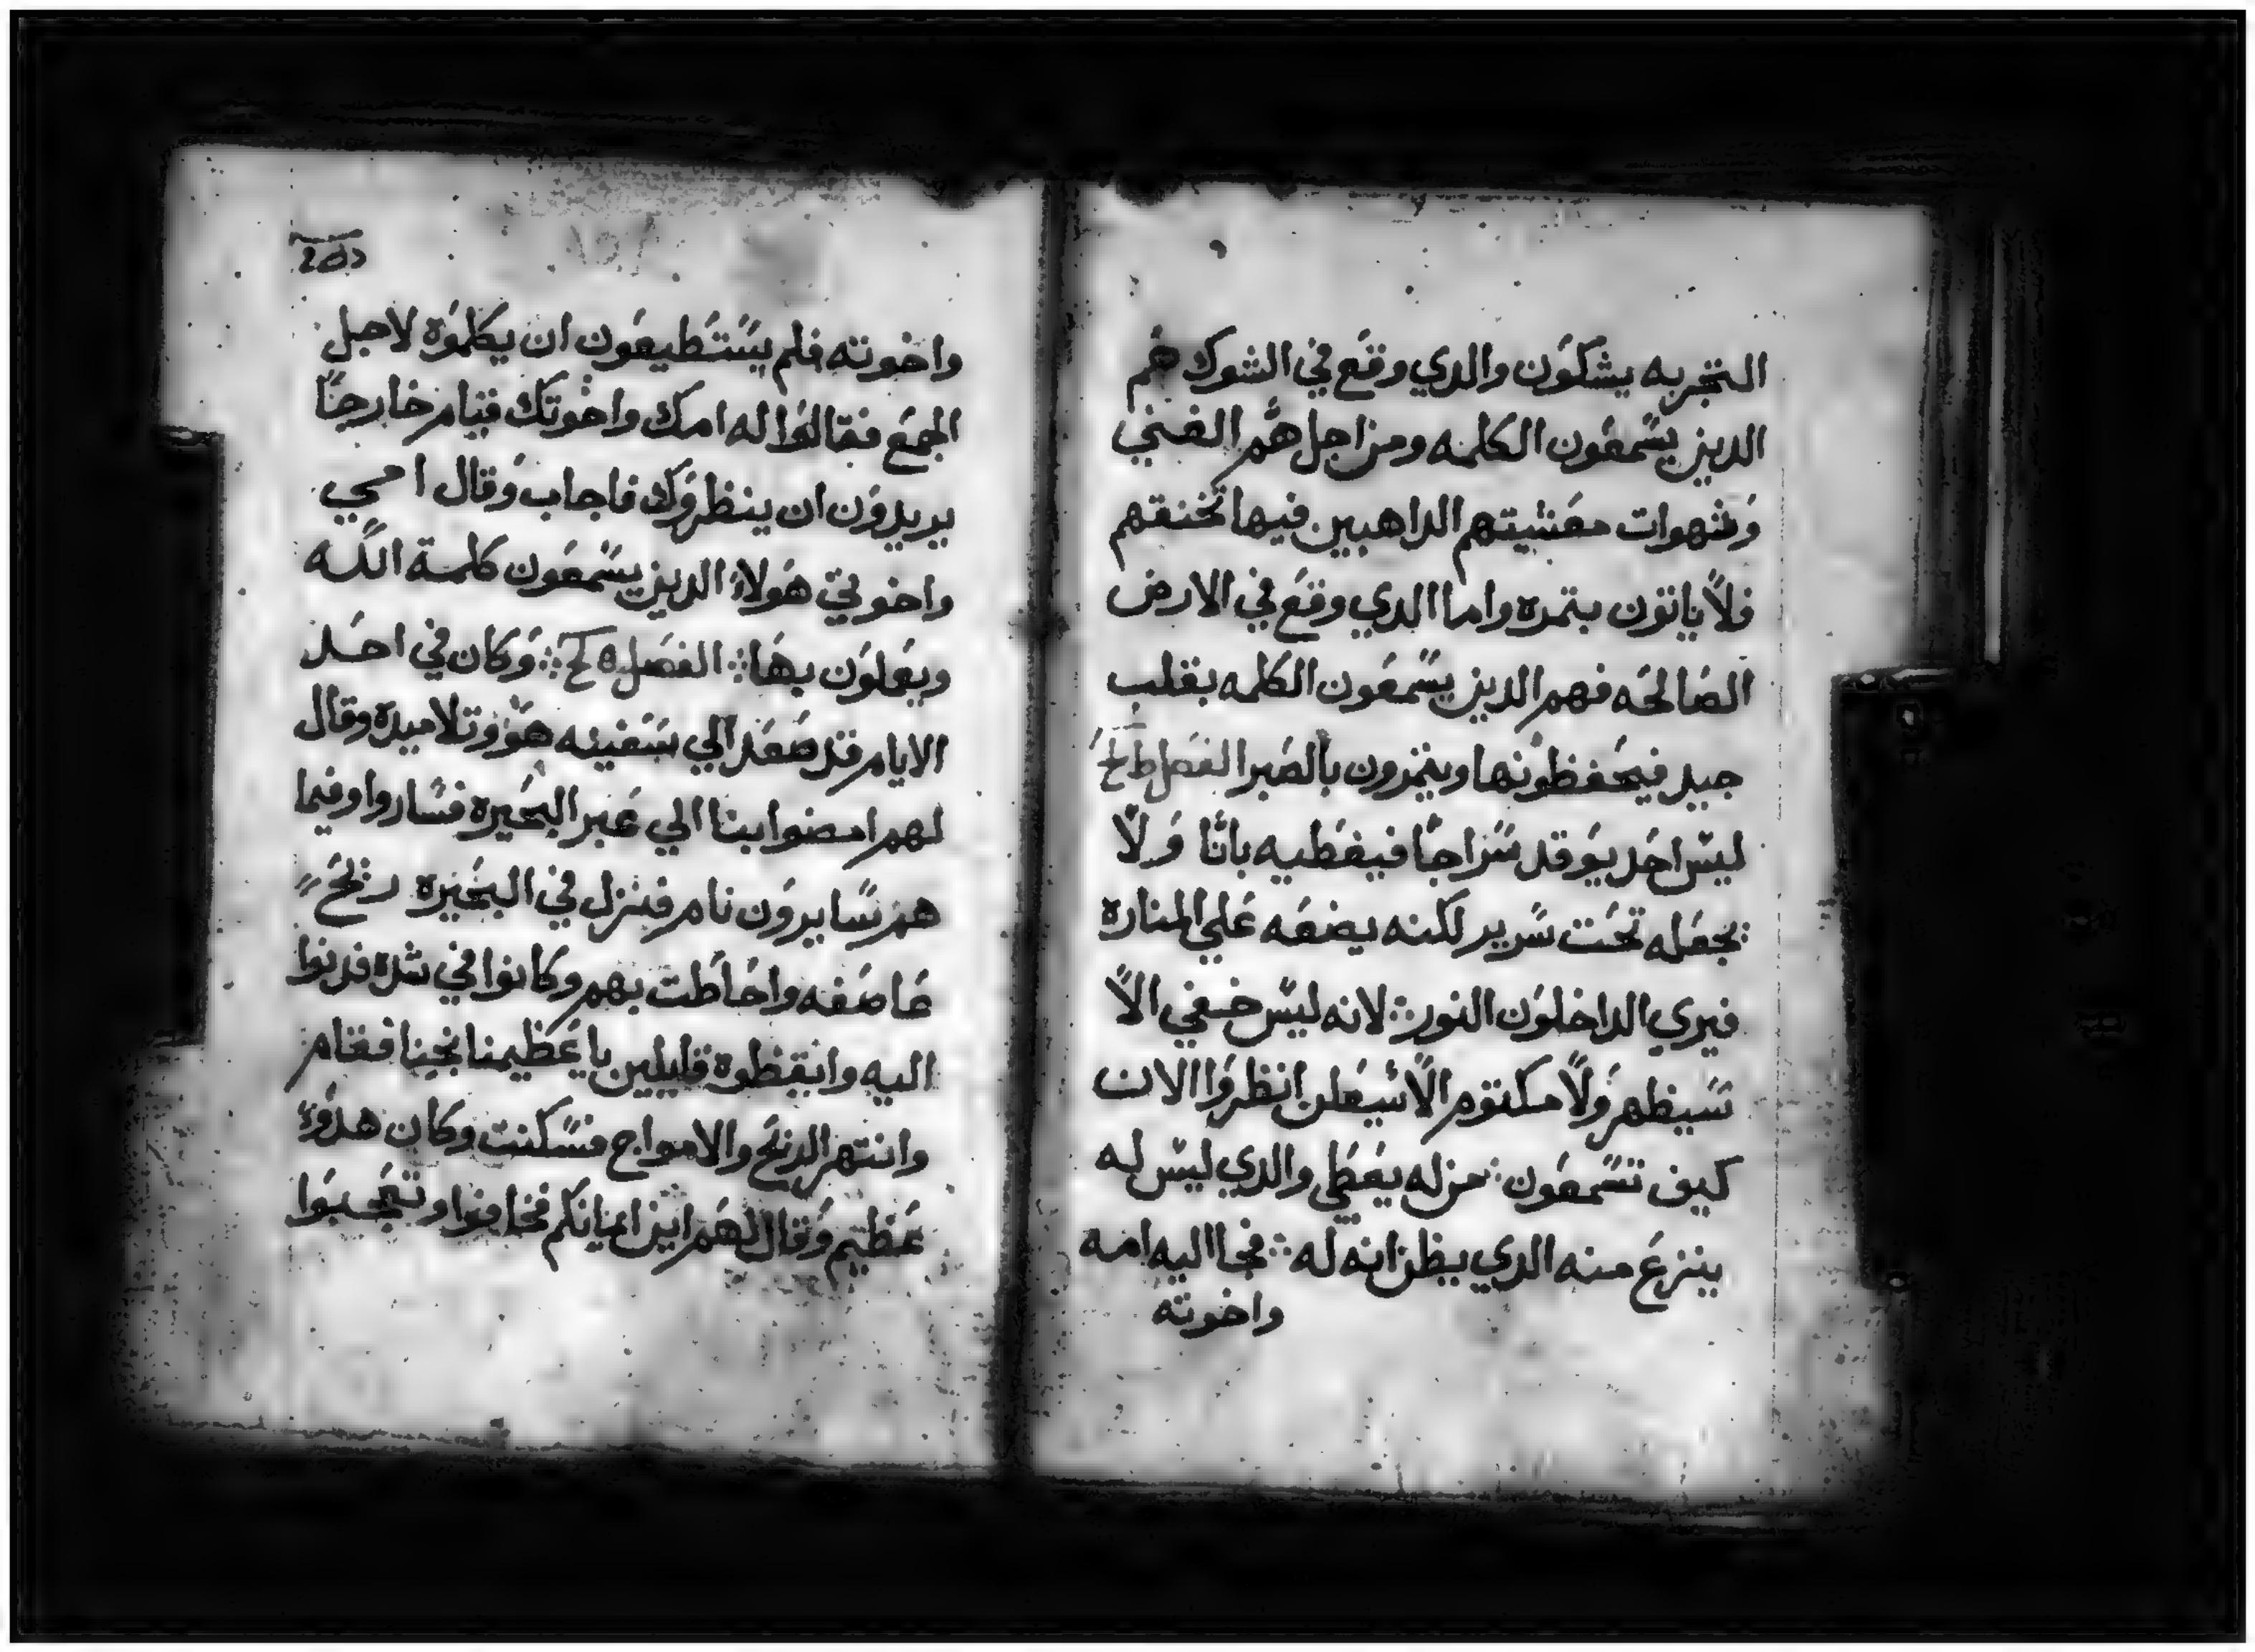 التجربه يشكون والدي وقع في الشوك هم
الدين يسمعون الكلمه ومن اجل هم الغني
وشهوات معشيتهم الداهبين فيها تخنقهم
فلا ياتون بتمره واما الدي وقع في الارض
الصالحه فهم الدين يسمعون الكلمه بقلب
جيد فيحفظونها ويتمرون بالصبر الفصل
ليس احد يوقد سراجا فيغطيه باناا ولا
يجعله تحت سرير لكنه يضعه علي المناره
فيري الداخلون النور لانه ليس خفي الا
سيظهر ولا مكتوم الا سيعلن انظروا الان
كيف تسمعون من له يعطي والدي ليس له
ينزع منه الدي يظن انه له فجا اليه امه
واخوته
واخوته فلم يستطيعون ان يكلموه لاجل
الجمع فقالوا له امك واخوتك قيام خارجا
يريدون ان ينظروك فاجاب وقال امي
واخوتي هولاء الدين يسمعون كلمة الله
ويعملون بها الفصل وكان في احد
الايام قد صعد الي سفينه هو وتلاميده وقال
لهم امضوا بنا الي عبر البحيره فساروا وفيما
هم سايرون نام فنزل في البحيره ريح
عاصفه واحاطت بهم وكانوا في شده فدنوا
اليه وايقظوه قايلين يا عظيمنا نجينا فقام
وانتهر الريح والامواج فسكنت وكان هدوء
عظيم وقال لهم اين ايمانكم فخافوا وتعجبوا